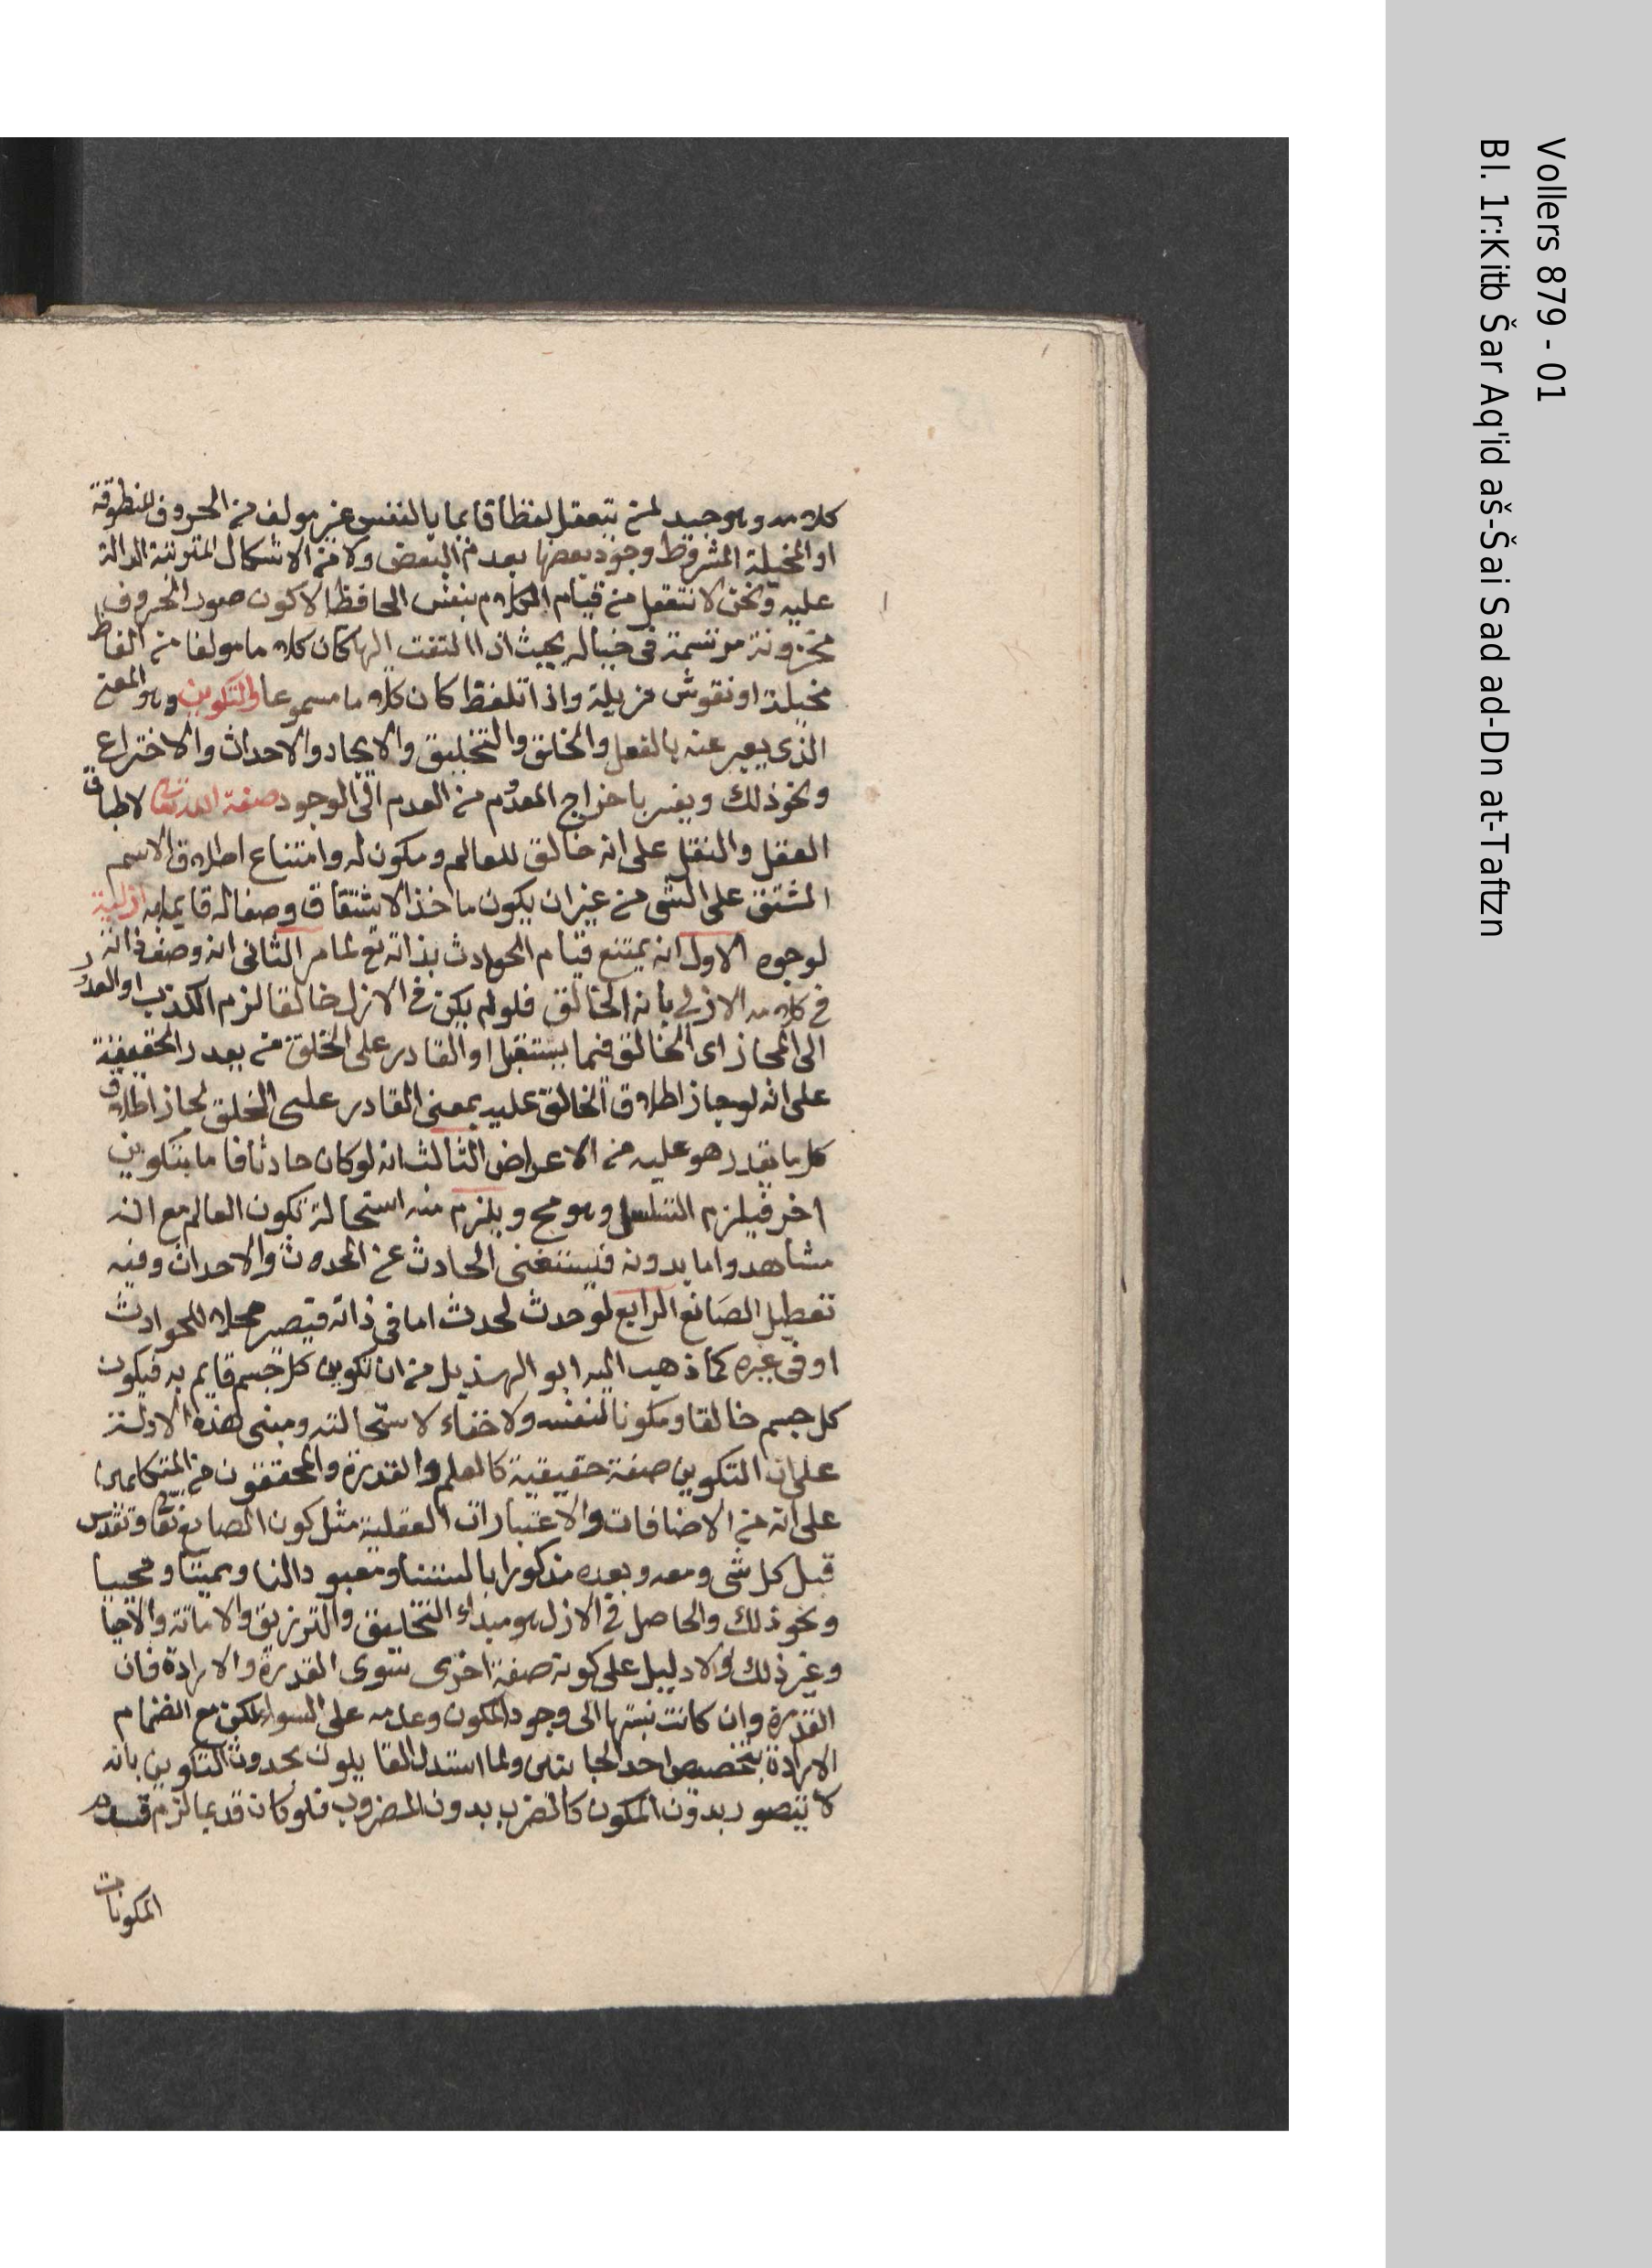 كلامه وهو جيد لمن يتعقل لفظا قايما بالنفس غير مولف من الحروف المنطوقة
او المخيلة المشروط وجود بعضها بعدم البعض ولا من الاشكال المترتبة الدالة
عليه ونحن لا نتعقل من قيام الكلام بنفس الحافظ الا كون صور الحروف
مخزونة مرتسمة فى خياله بحيث اذا التفت اليها كان كلاما مولفا من الفاظ
مخيلة او نقوش مرتبة واذا تلفظ كان كلاما مسموعا والتكوين وهو المعنى
الذى يعبر عنه بالفعل والخلق والتخليق والايجاد والاحداث والاختراع
ونحو ذلك ويفسر باخراج المعدوم من العدم الى الوجود صفة الله تعالى لاطباق
العقل والنقل على انه خالق للعالم ومكون له وامتناع اطلاق الاسم
المشتق على الشى من غير ان يكون ماخذ الاشتقاق وصفا له قايما به ازلية
لوجوه الاول انه يمتنع قيام الحوادث بذاته تع لما مر الثانى انه وصف ذاته
فى كلامه الازلى بانه الخالق فلو لم يكن فى الازل خالقا لزم الكذب او العدول
الى المجاز اى الخالق فيما يستقبل او القادر على الخلق من بعدر الحقيقة
على انه لو جاز اطلاق الخالق عليه بمعنى القادر على الخلق لجاز اطلاق
كل ما يقدر هو عليه من الاعراض الثالث انه لو كان حادثا فاما بتكوين
اخر فيلزم التسلسل وهو مح ويلزم منه استحالة تكون العالم مع انه
مشاهد واما بدونه فيستغنى الحادث عن المحدث والاحداث وفيه
تعطيل الصانع الرابع لو حدث لحدث اما فى ذاته فيصير محلا للحوادث
او فى غيره كما ذهب اليه ابو الهذيل من ان تكوين كل جسم قايم به فيكون
كل جسم خالقا ومكونا لنفسه ولا خفاء لاستحالته ومبنى هذه الادلة
على ان التكوين صفة حقيقية كالعلم والقدرة والمحققون من المتكلمين
على انه من الاضافات والاعتبارات العقلية مثل كون الصانع تعالى وتقدس
قبل كل شى ومعه وبعده مذكورا بالسنتنا ومعبودا لنا ومميتا ومحييا
ونحو ذلك والحاصل فى الازل هو مبداء التخليق والترزيق والاماتة والاحيا
وغير ذلك ولا دليل على كونه صفة اخرى سوى القدرة والارادة فان
القدرة وان كانت نسبتها الى وجود المكون وعدمه على السوا لكن مع انضمام
الارادة بتخصيص احد الجانبين ولما استدل القايلون بحدوث التكوين بانه
لا يتصور بدون المكون كالضرب بدون المضروب فلو كان قديما لزم قدم
المكونات
Vollers 879 - 01
Bl. 1r:Kitb Šar Aq'id aš-Šai Sad ad-Dn at-Taftzn